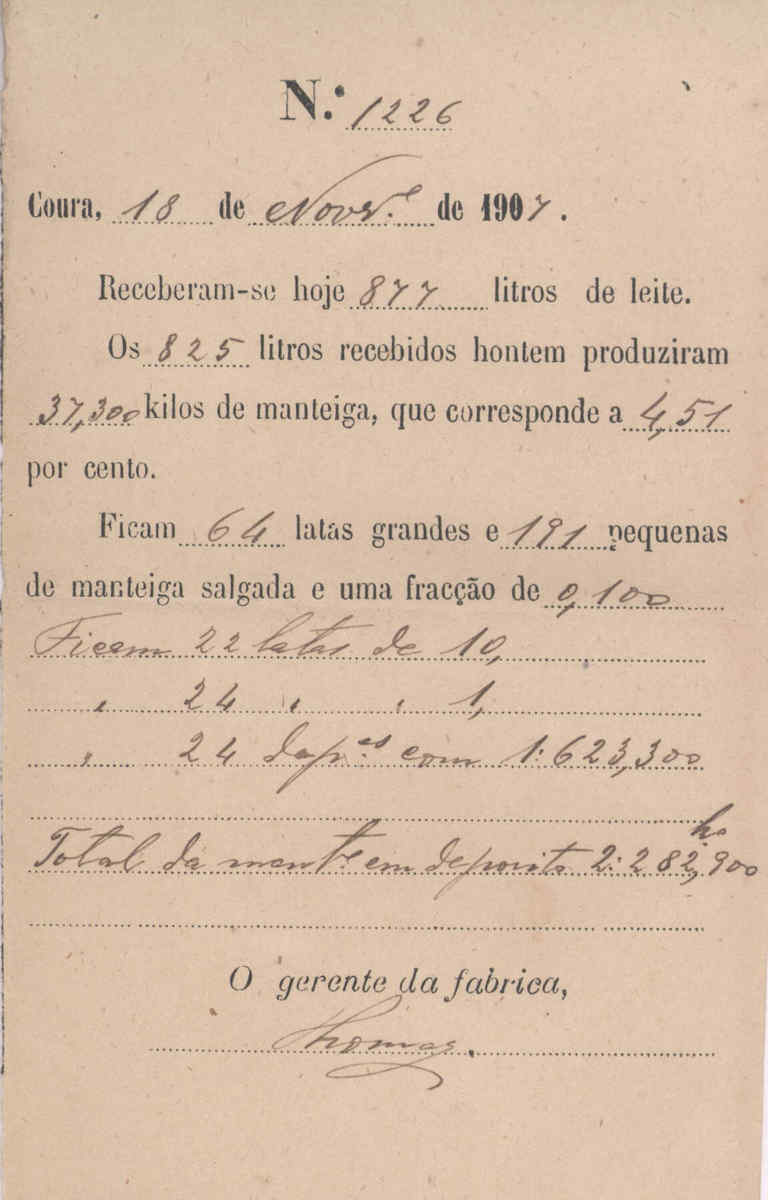 N.º 1226
Coura, 18 de Novr.e de 1907.
Receberam-se hoje 877 litros de leite.
Os 825 litros recebidos hontem produziram
37,300 kilos de manteiga, que corresponde a 4,51
por cento.
Ficam 64 latas grandes e 191 pequenas
de manteiga salgada e uma fracção de 0,100
Ficam 22 latas de 10,
" 24 " " 1,
" 24 dep.es com 1:623,300
Total da mant.e em deposito 2:282,900 ks
O gerente da fabrica,
Thomaz.